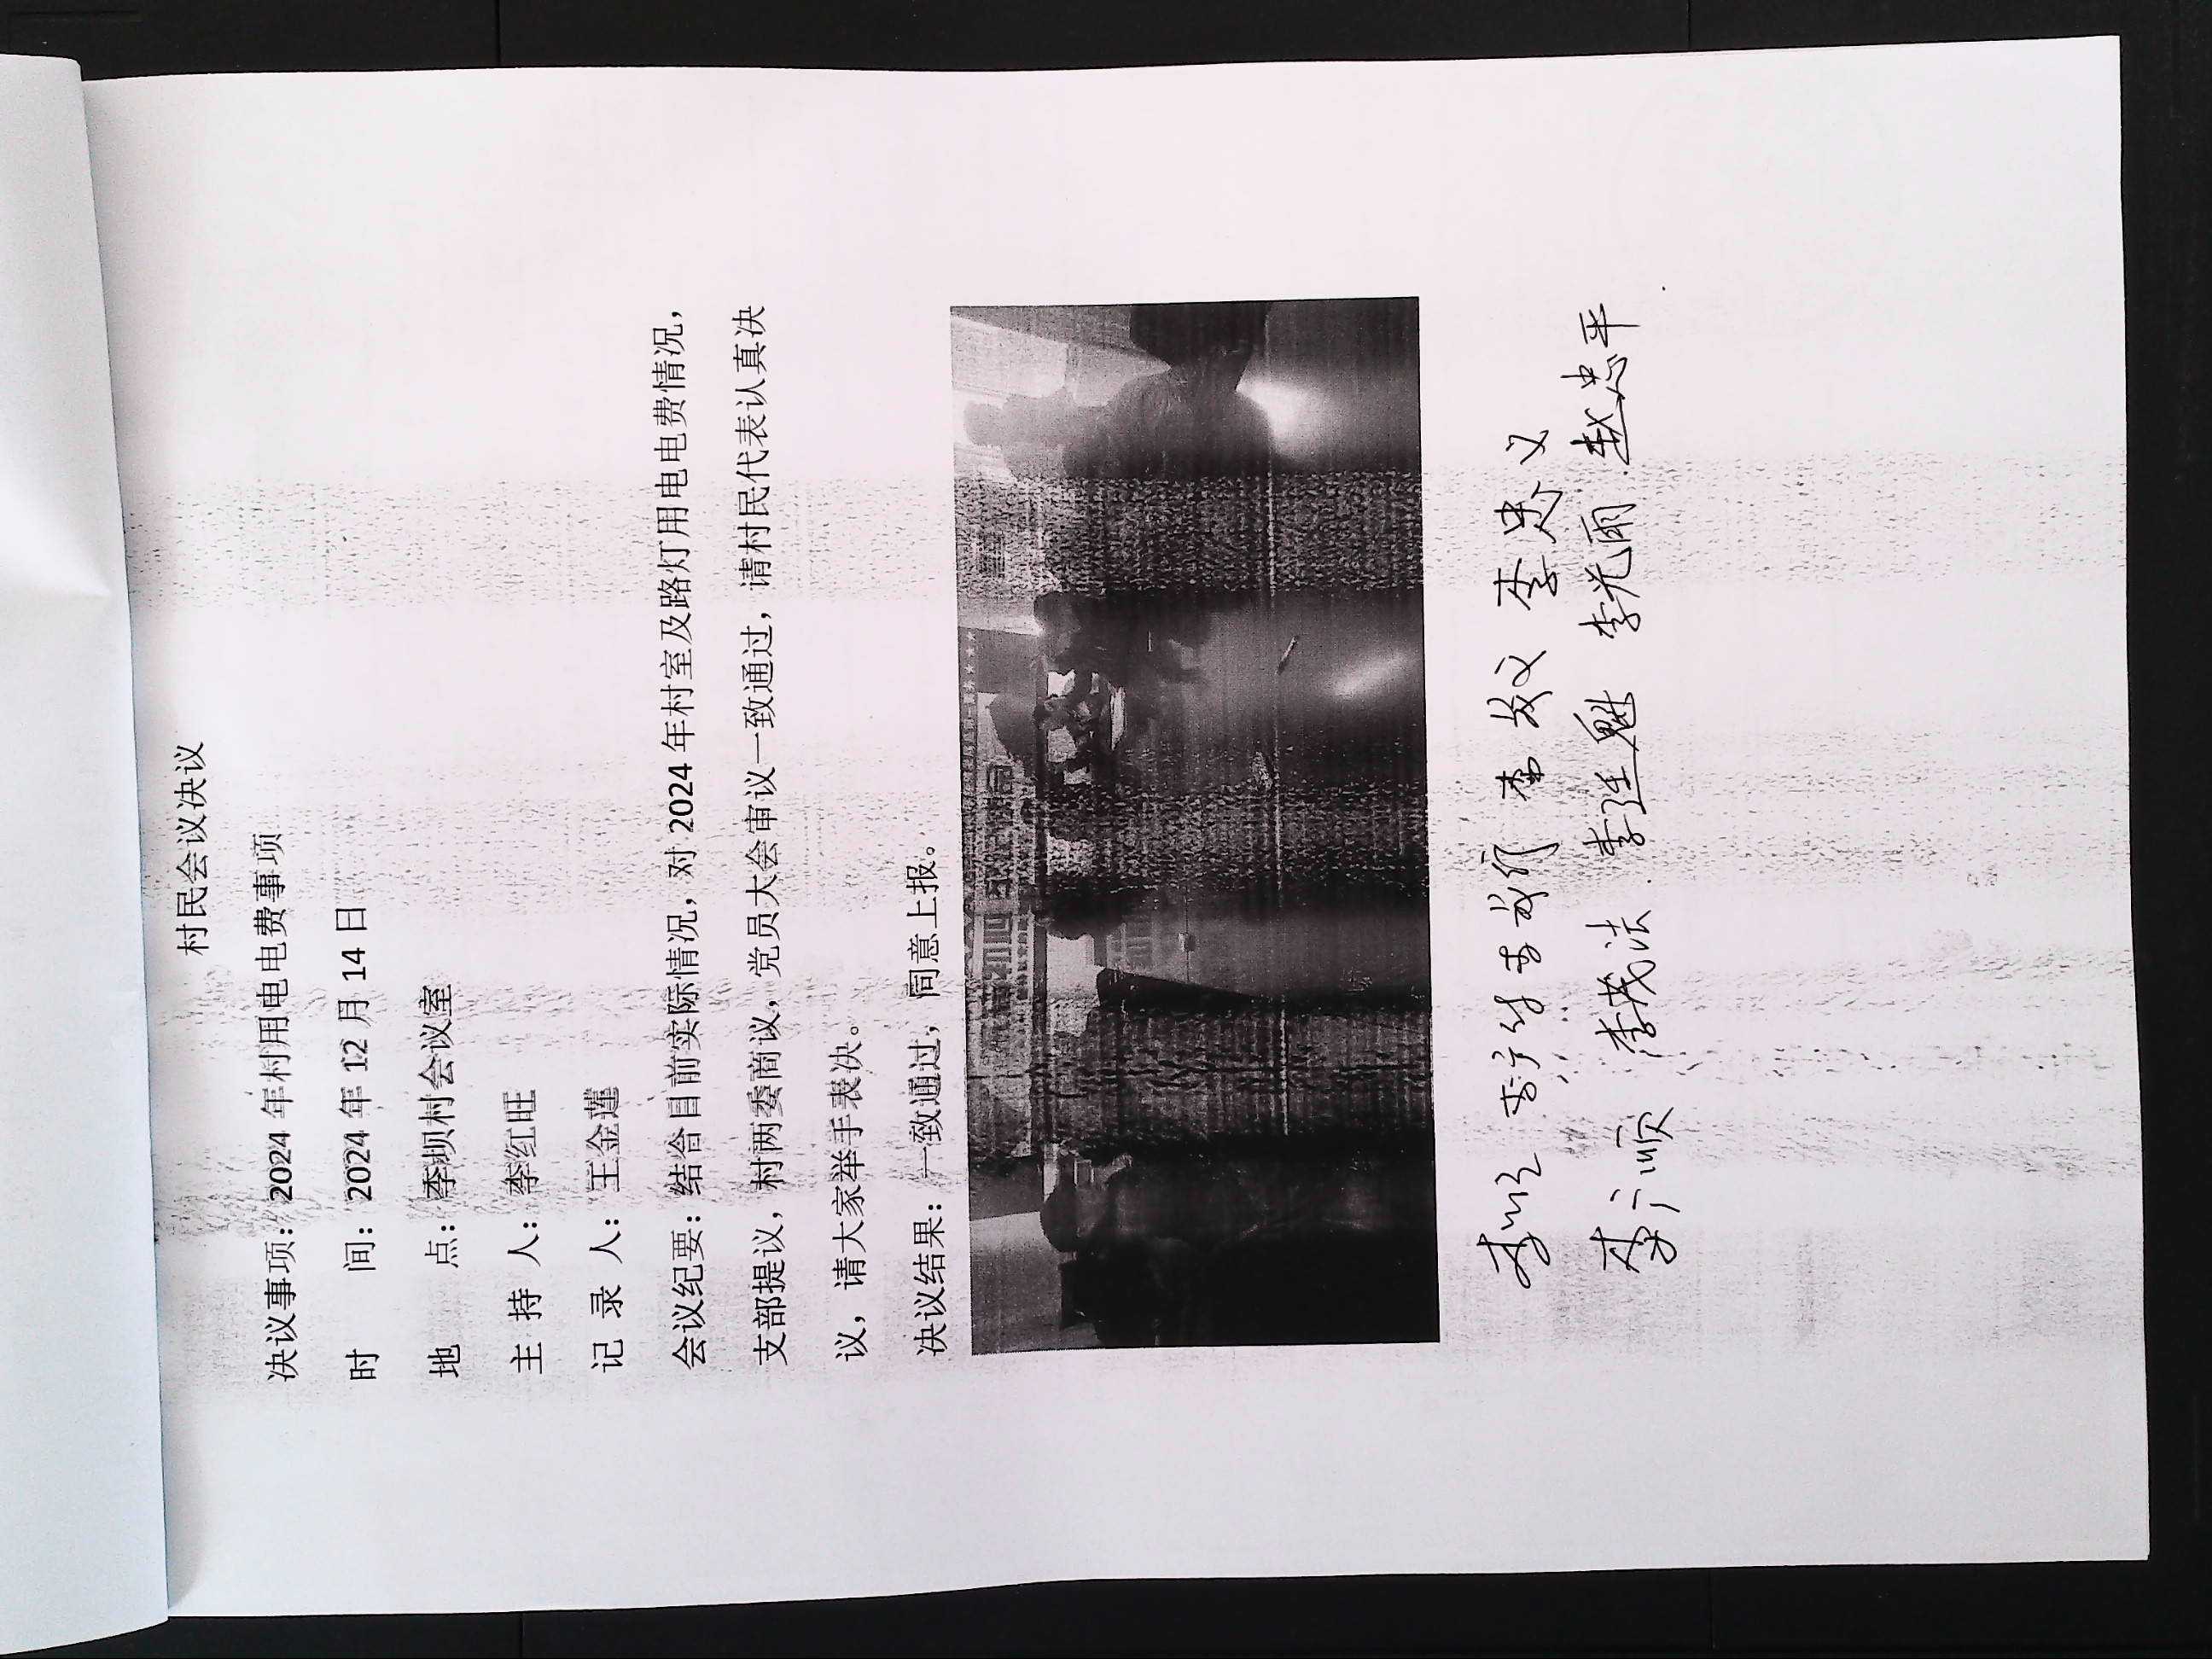 村民会议决议
决议事项：2024 年村用电电费事项
时 间：2024 年 12 月 14 日
地 点：季坝村会议室
主 持 人：季红旺
记 录 人：王金莲
会议纪要：结合目前实际情况，对 2024 年村室及路灯用电电费情况，
支部提议，村两委商议，党员大会审议一致通过，请村民代表认真决
议，请大家举手表决。
决议结果：一致通过，同意上报。
李忠义
李广顺 李茂法 李光雨 赵忠平